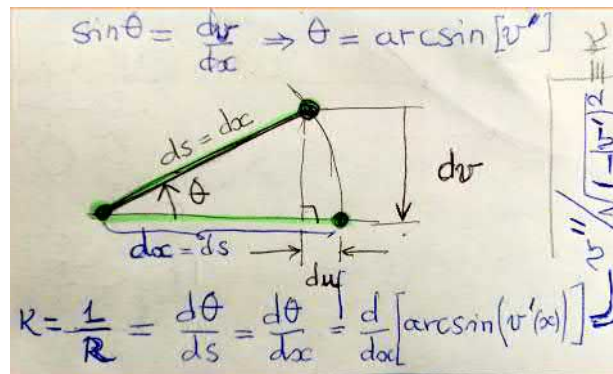 sinθ = dv/dx ⇒ θ = arcsin[v'']
ds = dx
θ
dv
dx = ds
du
K = 1/R = dθ/ds = dθ/dx = d/dx[arcsin(v'(x))]
v''/√(1-dv')² ≡ K